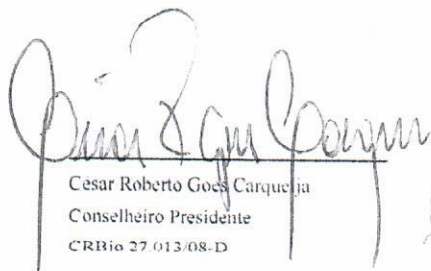 César Roberto Goes Carqueija
Conselheiro Presidente
CRBio 27.013/08-D